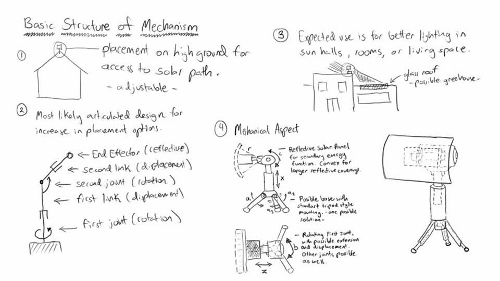 Basic Structure of Mechanism
①
placement on high ground for
access to solar path.
- adjustable -
②
Most likely articulated design for
increase in placement options.
End Effector (reflective)
second link (displacement)
second joint (rotation)
first link (displacement)
first joint (rotation)
③
Expected use is for better lighting in
sun halls, rooms, or living space.
glass roof
- possible greenhouse -
④
Mechanical Aspect
- Reflective Solar Panel
for secondary energy
function. Convex for
larger reflective coverage.
- Possible base with
standard tripod style
mounting. - one possible
solution -
- Rotating First Joint,
with possible extension
and displacement.
Other joints possible
as well.